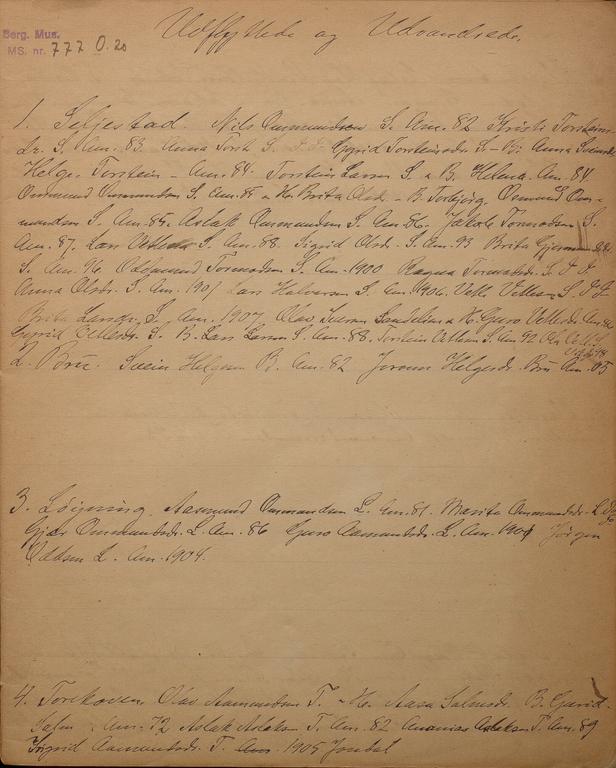 Berg. Mus.
MS. nr. 777 O. 20
Udflyttede og Udvandrede.
1. Seljestad. Nils Osmundsen S. Am. 82 Kristi Torsteins
dr. S. Am. 83 Anna Torst S. Gyrid Torsteinsdr. S - Anna Sveinsd.
Helge Torstein - Am. 84. Torstein Larsen S. a B. Helena Am. 84
Osmund Osmundsen S. Am. 85 a H. Brita Olsd. - B. Torbjørg. Osmund Os-
mundsen S. Am. 85. Aslak Osmundsen S. Am. 86. Jakob Tormodsen S.
Am. 87. Lars S. Am. 88. Sigrid Olsdr. S. Am. 93 Brita
S. Am. 96. Oddmund Tormodsen S. Am. 1900 Ragna Tormodsdr. S.
Anna Olsdr. S. Am. 1901 Lars Halvorsen S. Am. 1906. Vetle Vetlesen S.
Brita Larsdr. S. Am. 1907 Olav a H. Guro Vetlesdr. Am.
Gyrid Vetlesdr. S. B. Lars Larsen S. Am. 88. Torstein S. Am. 92
2. Bru. Svein Helgesen B. Am. 82 Joronn Helgesdr. Bru Am. 05
3. Løigning. Aasmund Osmundsen L. Am. 81. Marita Osmundsdr. L.
Gjær Osmundsdr. L. Am. 86 Guro Aamundsdr. L. Am. 1904 Jørgen
Oddsen L. Am. 1904.
4. Torekoven. Olav Aamundsen T. - H. Aasa Salmsdr. B. Gurid.
Salm. Am. 72 Aslak Aslaksen T. Am. 82 Ananias Aslaksen T. Am. 89
Sigrid Aamundsdr. T. Am. 1905